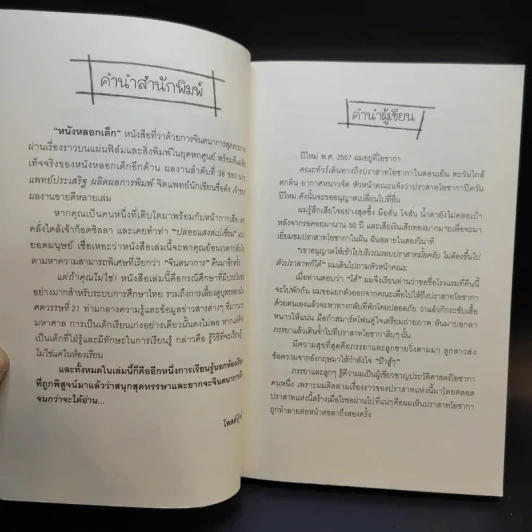 คำนำสำนักพิมพ์
"หนังหลอกเด็ก" หนังสือที่ว่าด้วยการจินตนาการสุดตระการ
ผ่านเรื่องราวบนแผ่นฟิล์มและสิ่งพิมพ์ในยุคหกศูนย์ พร้อมตีแผ่
เท็จจริงของหนังหลอกเด็กอีกด้าน ผลงานลำดับที่ 38 ของ นาย
แพทย์ประเสริฐ ผลิตผลการพิมพ์ จิตแพทย์นักเขียนชื่อดัง เจ้าของ
ผลงานขายดีหลายเล่ม
หากคุณเป็นคนหนึ่งที่เติบโตมาพร้อมกับหน้ากากเสือ
คลั่งไคล้เจ้าก็อดซิลลา และเคยทำท่า "ปล่อยแสงสเปเซี่ยม"
ยอดมนุษย์ เชื่อเหอะว่าหนังสือเล่มนี้จะพาคุณย้อนเวลากลับ
ตามหาความสามารถพิเศษที่เรียกว่า "จินตนาการ" คืนมาอีกครั้ง
แต่ถ้าคุณไม่ใช่! หนังสือเล่มนี้คือกรณีศึกษาที่มีประโยชน์
อย่างมากสำหรับระบบการศึกษาไทย รวมถึงการเลี้ยงดูบุตรหลาน
ศตวรรษที่ 21 ท่ามกลางความรู้ และข้อมูลข่าวสารต่างๆ ที่
มหาศาล การเป็นเด็กเรียนเก่งอย่างเดียวนั้นคงไม่พอ หาก
เป็นเด็กที่ใฝ่รู้และมีทักษะในการเรียนรู้ กล่าวคือ รู้วิธีที่จะเรียนรู้
ไม่ใช่แค่ในห้องเรียน
และทั้งหมดในเล่มนี้ก็คืออีกหนึ่งการเรียนรู้นอกห้องเรียน
ที่ถูกพิสูจน์มาแล้วว่าสนุกสุดหรรษาและยากจะจินตนาการ
จนกว่าจะได้อ่าน...
คำนำผู้เขียน
ปีใหม่ พ.ศ. 2557 ผมอยู่ที่โอซากา
คณะทัวร์เดินทางถึงปราสาทโอซากาในตอนเย็น ตะวันใกล้
ตกดิน อากาศหนาวจัด หัวหน้าคณะแจ้งว่าปราสาทโอซากาปิดวัน
ปีใหม่ ดังนั้นจะขออนุญาตเปลี่ยนไปที่อื่น
ผมรู้สึกเสียใจอย่างสุดซึ้ง มือสั่น ใจสั่น น้ำตายังไม่คลอเบ้า
หลังจากรอคอยมานาน 50 ปี และเสียเงินเสียทองมากมายเพื่อจะมา
เยี่ยมชมปราสาทโอซากาในฝัน ฝันสลายในสองวินาที
"เขาอนุญาตให้เข้าไปบริเวณรอบปราสาทมั้ยครับ ไม่ต้องขึ้นไป
ตัวปราสาทก็ได้" ผมเดินไปถามหัวหน้าคณะ
เมื่อท่านตอบว่า "ได้" ผมจึงเรียนท่านว่าขอชื่อโรงแรมที่คืนนี้
จะไปพักกัน ผมขอแยกตัวออกจากคณะเพื่อไปให้ถึงปราสาทโอซากา
ด้วยตนเองแล้วจะหาทางกลับที่พักโดยปลอดภัย ว่าแล้วก็กระชับเสื้อ
หนาวให้แน่น มือกำสมาร์ตโฟนคู่ใจเตรียมถ่ายภาพ หันมาบอกลา
ภรรยาแล้วเดินจ้ำไปที่ปราสาทโอซากาลิบๆ นั้น
มีความสุขที่สุดคือภรรยาและลูกชายวิ่งตามมา ลูกสาวส่ง
ข้อความจากอังกฤษมาให้กำลังใจ "ป๊าสู้ๆ"
ภรรยาและลูกๆ รู้ดีว่าผมเป็นผู้เชี่ยวชาญประวัติศาสตร์โอซากา
คนหนึ่ง เพราะผมติดตามเรื่องราวของปราสาทแห่งนี้มาโดยตลอด
ปราสาทแห่งนี้สร้างเมื่อไรขอผ่านไปที่แน่ๆ คือผมเห็นปราสาทโอซากา
ถูกทำลายต่อหน้าต่อตาถึงสองครั้ง